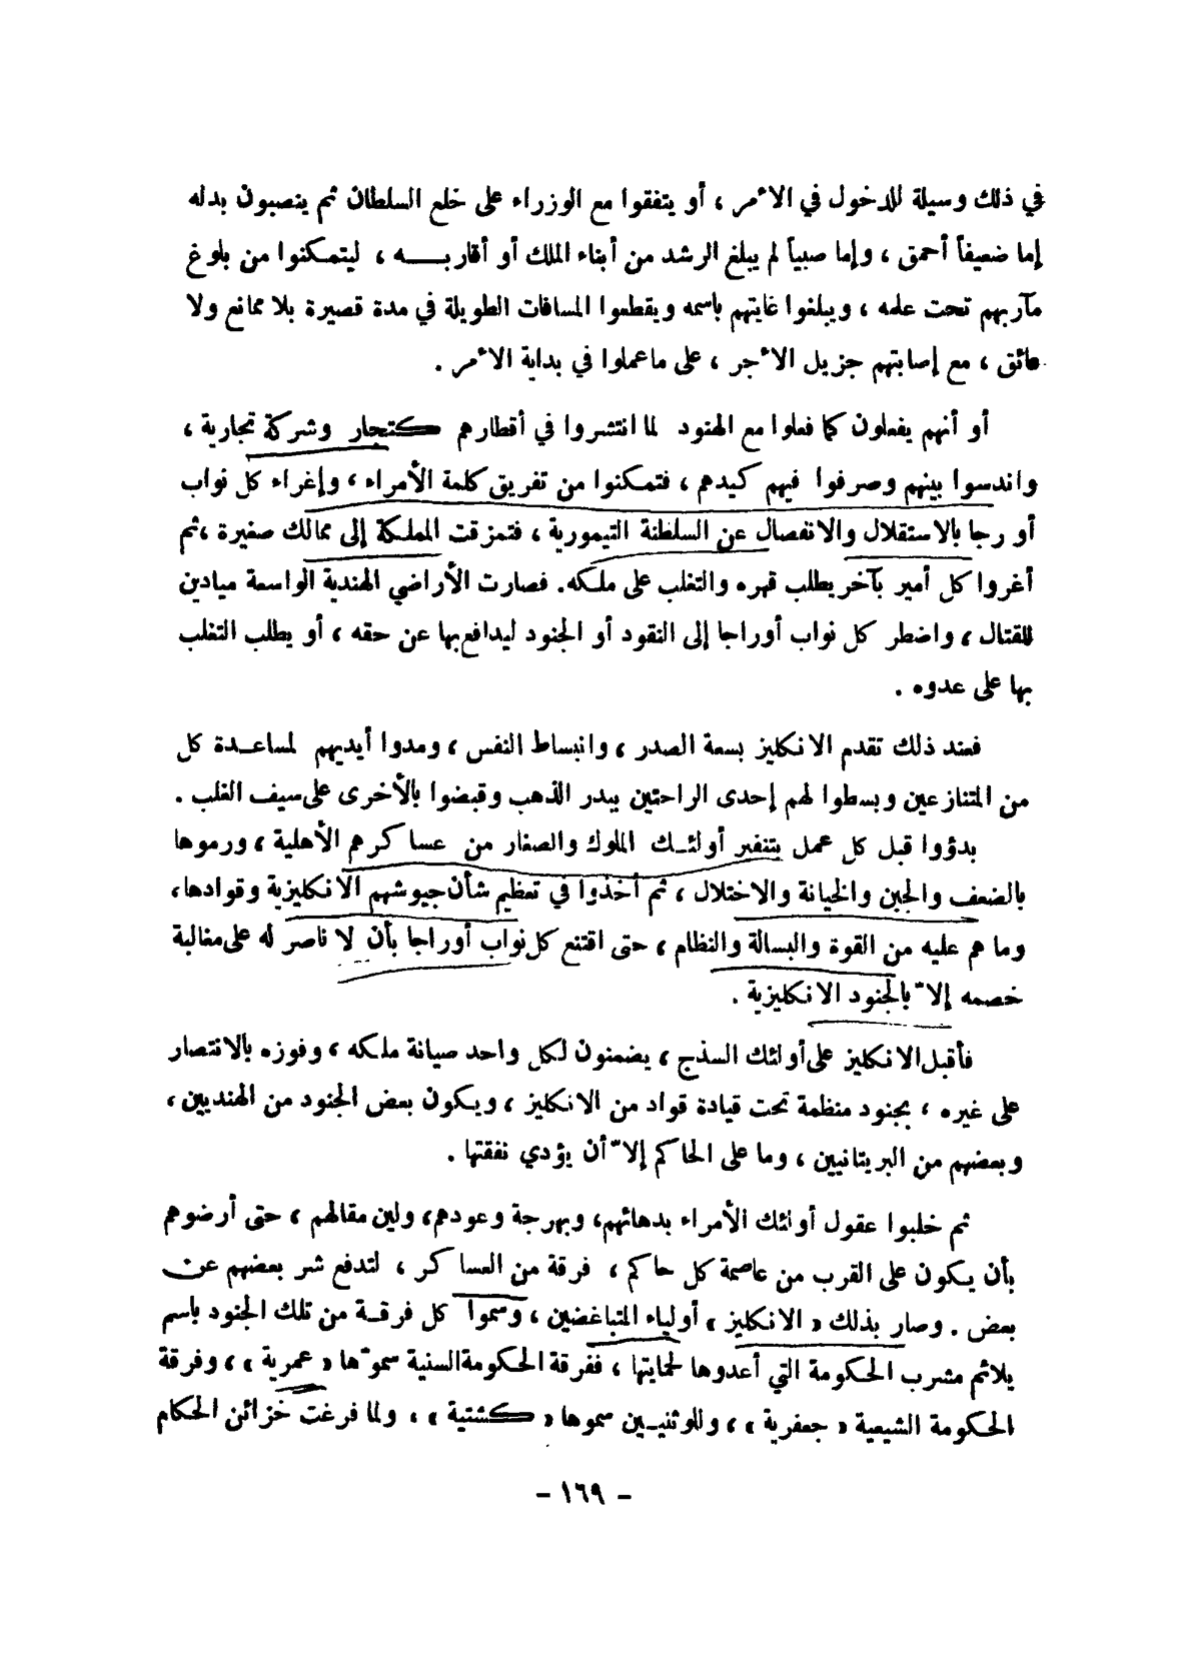 في ذلك وسيلة للدخول في الأمر ، أو يتفقوا مع الوزراء على خلع السلطان ثم ينصبون بدله
إما ضعيفاً أحمق ، وإما صبياً لم يبلغ الرشد من أبناء الملك أو أقاربـــه ، ليتمكنوا من بلوغ
مآربهم تحت علمه ، ويبلغوا غايتهم باسمه ويقطعوا المسافات الطويلة في مدة قصيرة بلا ممانع ولا
عائق ، مع إصابتهم جزيل الأجر ، على ماعملوا في بداية الأمر .
أو أنهم يفعلون كما فعلوا مع الهنود لما انتشروا في أقطارهم كتجار وشركة تجارية ،
واندسوا بينهم وصرفوا فيهم كيدهم ، فتمكنوا من تفريق كلمة الأمراء ، وإغراء كل نواب
أو رجا بالاستقلال والانفصال عن السلطنة التيمورية ، فتمزقت المملكة إلى ممالك صغيرة ، ثم
أغروا كل أمير بآخر يطلب قهره والتغلب على ملكه. فصارت الأراضي الهندية الواسعة ميادين
للقتال ، واضطر كل نواب أوراجا إلى النقود أو الجنود ليدافع بها عن حقه ، أو يطلب التغلب
بها على عدوه .
فعند ذلك تقدم الانكليز بسعة الصدر ، وانبساط النفس ، ومدوا أيديهم لمساعـدة كل
من المتنازعين وبسطوا لهم إحدى الراحتين ببدر الذهب وقبضوا بالأخرى على سيف الغلب .
بدؤوا قبل كل عمل بتنفير أولئـك الملوك والصغار من عساكرهم الأهلية ، ورموها
بالضعف والجبن والخيانة والاختلال ، ثم أخذوا في تعظيم شأن جيوشهم الانكليزية وقوادها،
وما هم عليه من القوة والبسالة والنظام ، حتى اقتنع كل نواب أوراجا بأن لا ناصر له على مغالبة
خصمه إلاّ بالجنود الانكليزية .
فأقبل الانكليز على أولئك السذج ، يضمنون لكل واحد صيانة ملكه ، وفوزه بالانتصار
على غيره ، بجنود منظمة تحت قيادة قواد من الانكليز ، ويكون بعض الجنود من الهنديين ،
وبعضهم من البريتانيين ، وما على الحاكم إلاّ أن يؤدي نفقتها .
ثم خلبوا عقول أولئك الأمراء بدهائهم، وبهرجة وعودهم، ولين مقالهم ، حتى أرضوهم
بأن يكون على القرب من عاصمة كل حاكم ، فرقة من العساكر ، لتدفع شر بعضهم عن
بعض . وصار بذلك « الانكليز » أولياء المتباغضين ، وسموا كل فرقـة من تلك الجنود باسم
يلائم مشرب الحكومة التي أعدوها لحمايتها ، ففرقة الحكومة السنية سموّها « عمرية » ، وفرقة
الحكومة الشيعية « جعفرية » ، وللوثنيـين سموها « كشتية » . ولما فرغت خزائن الحكام
- ١٦٩ -